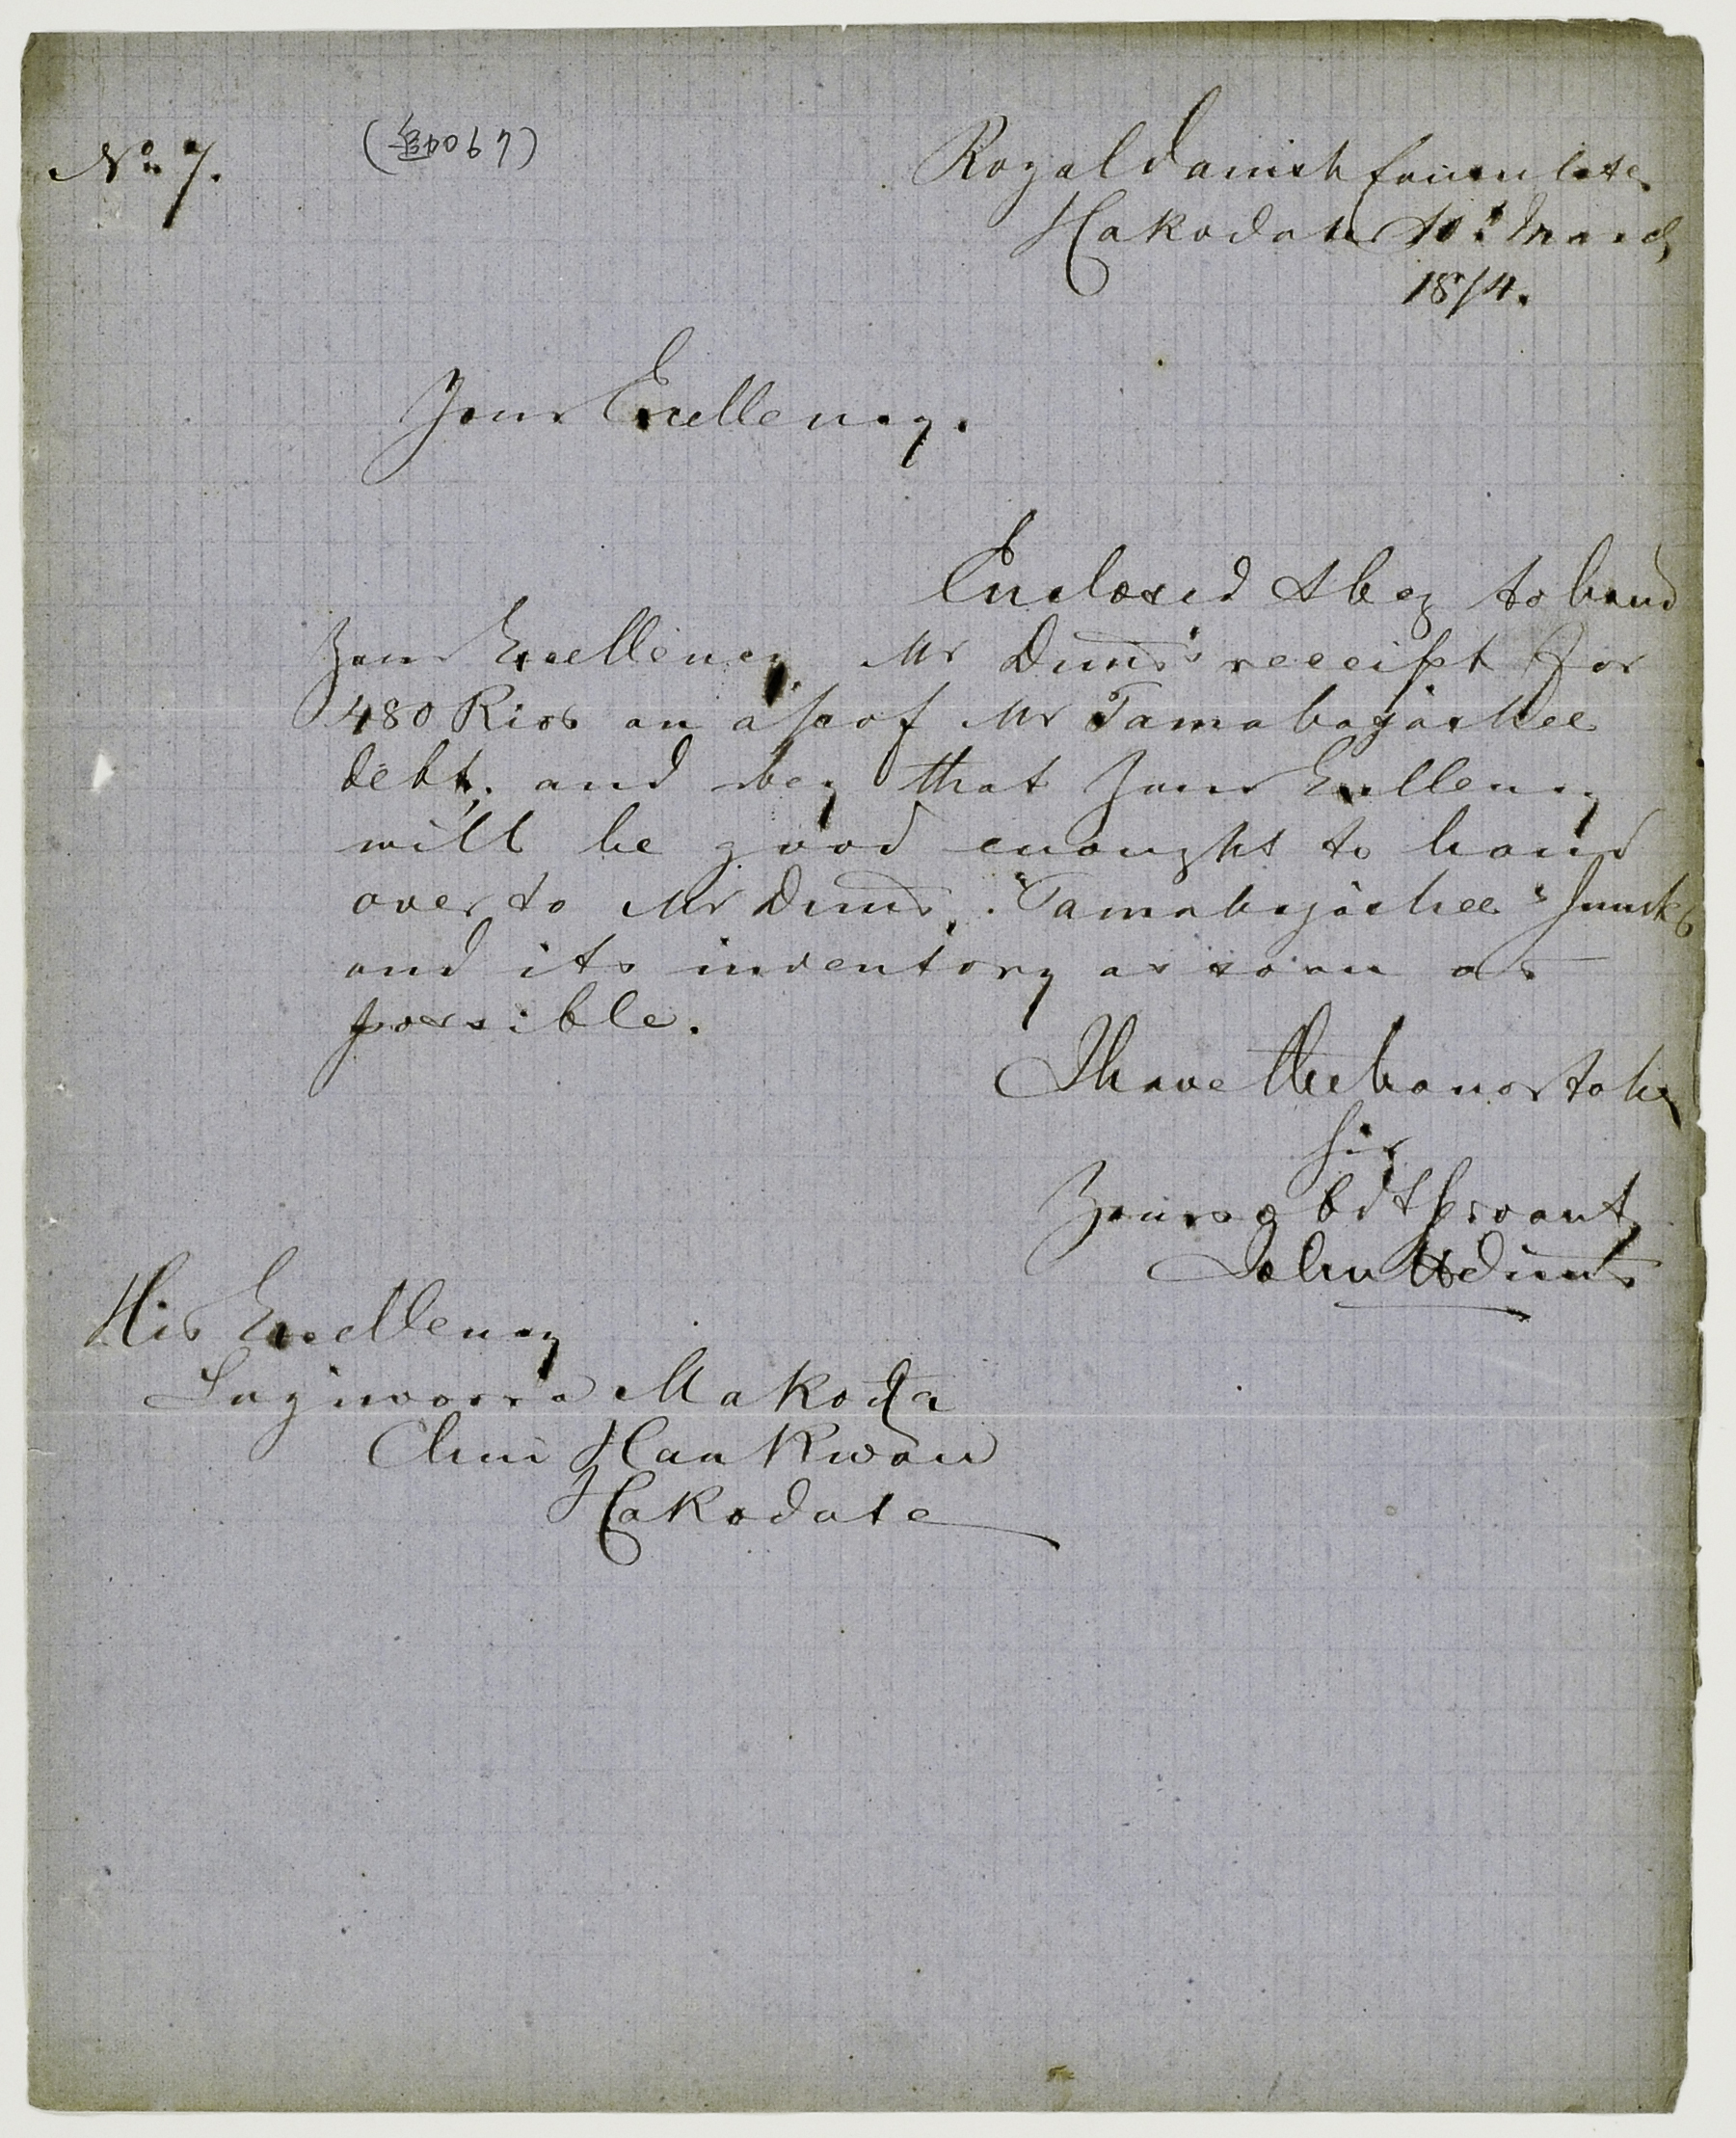 No. 7.
(追4067)
Royal Danish Consulate
Hakodate 10t March
1874.
Your Excellency.
Enclosed I beg to hand
Your Excellency Mr Duus's receipt for
480 Rios on a/c of Mr Tamabayashee
debt, and beg that Your Excellency
will be good enought to hand
over to Mr Duus, Tamabayashee's Junk
and its inventory as soon as
possible.
I have the honor to be
Sir
Your obdt Servant
John H Duus
His Excellency
Sugiwoora Makoto
Chiu Han Kwan
Hakodate